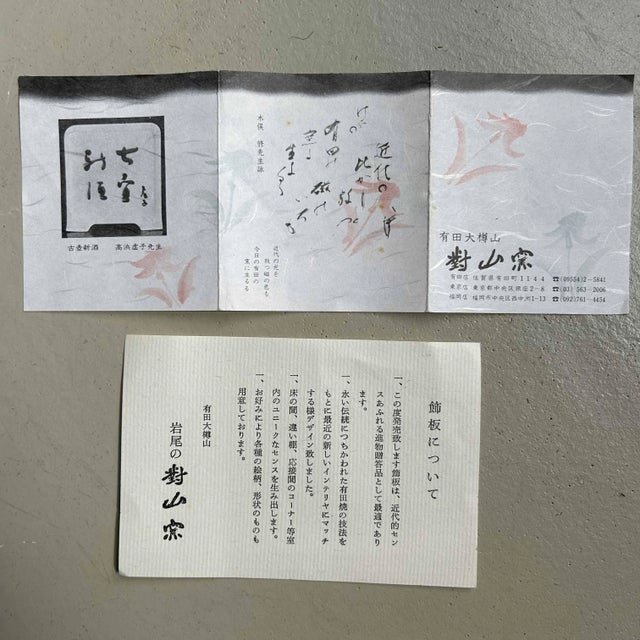 古壺
新酒
古壺新酒 高浜虚子先生
水俣 修先生詠
近代の光を
放つ磁の窓も
今日の有田の
窯に生るる
有田大樽山
對山窯
有田店 佐賀県有田町1144 ☎(09554)2-5841
東京店 東京都中央区銀座2-8 ☎(03) 563-2006
福岡店 福岡市中央区西中洲1-13 ☎(092)761-4454
飾板について
一、この度発売致します飾板は、近代的セン
スあふれる進物贈答品として最適であり
ます。
一、永い伝統につちかわれた有田焼の技法を
もとに最近の新しいインテリヤにマッチ
する様デザイン致しました。
一、床の間、違い棚、応接間のコーナー等室
内のユニークなセンスを生み出します。
一、お好みにより各種の絵柄、形状のものも
用意しております。
有田大樽山
岩尾の 對山窯